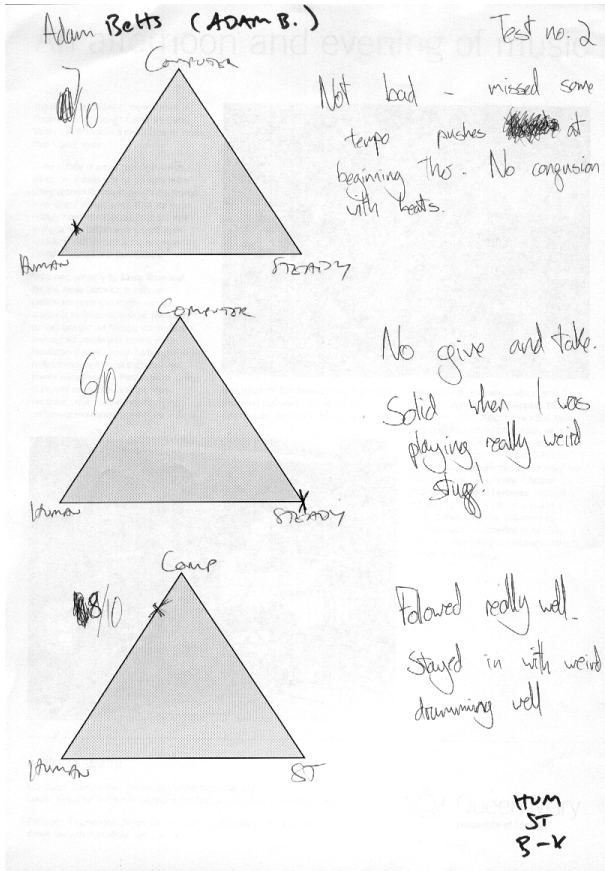 Adam Betts (ADAM B.)
Test no. 2
COMPUTER
7/10
HUMAN
STEADY
Not bad - missed some
tempo pushes at
beginning tho. No confusion
with beats.
COMPUTER
6/10
HUMAN
STEADY
No give and take.
Solid when I was
playing really weird
stuff!
COMP
8/10
HUMAN
ST
Followed really well.
Stayed in with weird
drumming well
HUM
ST
B-K